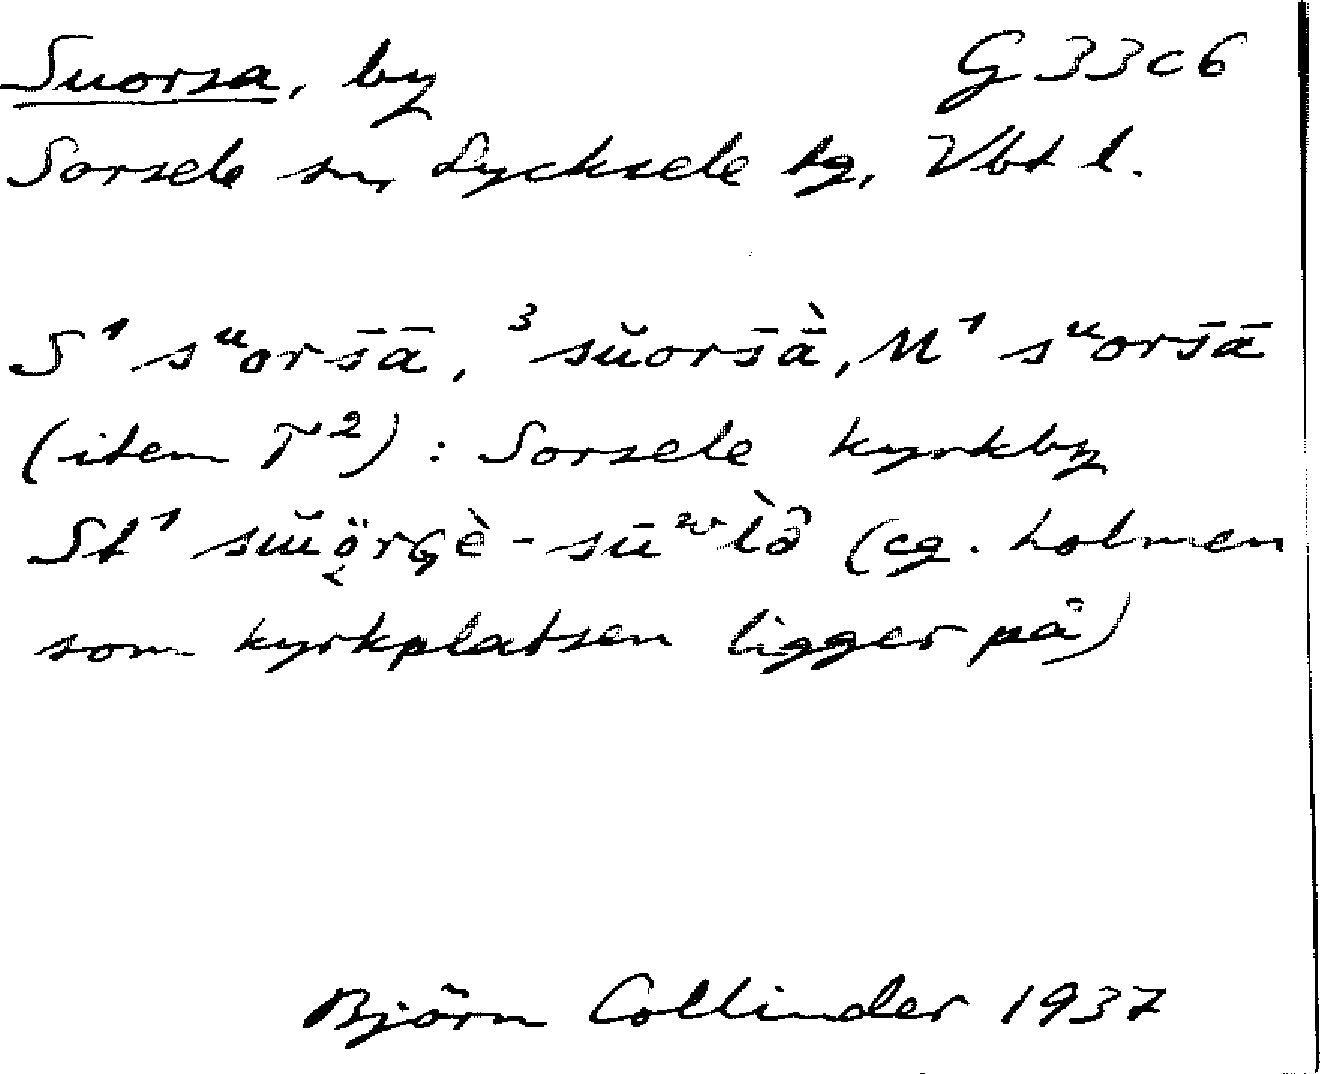 Suorsa, by G 33c6
Sorsele sn, Lycksele tg, Vbt l.
S¹ sᵘors̄ā, ³ sŭors̄ā̀, M¹ sᵘors̄ā
(item T²) : Sorsele kyrkby
St¹ sŭö̜rGè - sūʷlὰ (eg. holmen
som kyrkplatsen ligger på)
Björn Collinder 1937